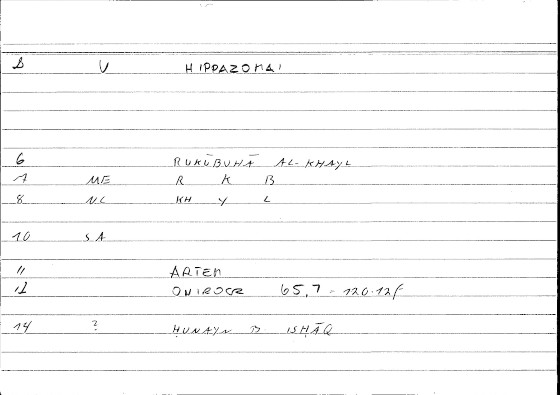 D U HIPPAZOMAI
6 RUKŪBUHĀ AL-KHAYL
7 ME R K B
8 NL KH Y L
10 SA
11 ARTEM
12 ONIROCR 65,7 - 120.12f
14 ? ḤUNAYN B ISḤĀQ